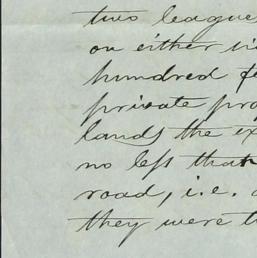 two league
on either si
hundred fe
private pro
lands the ex
no less than
road, i.e. a
they were t